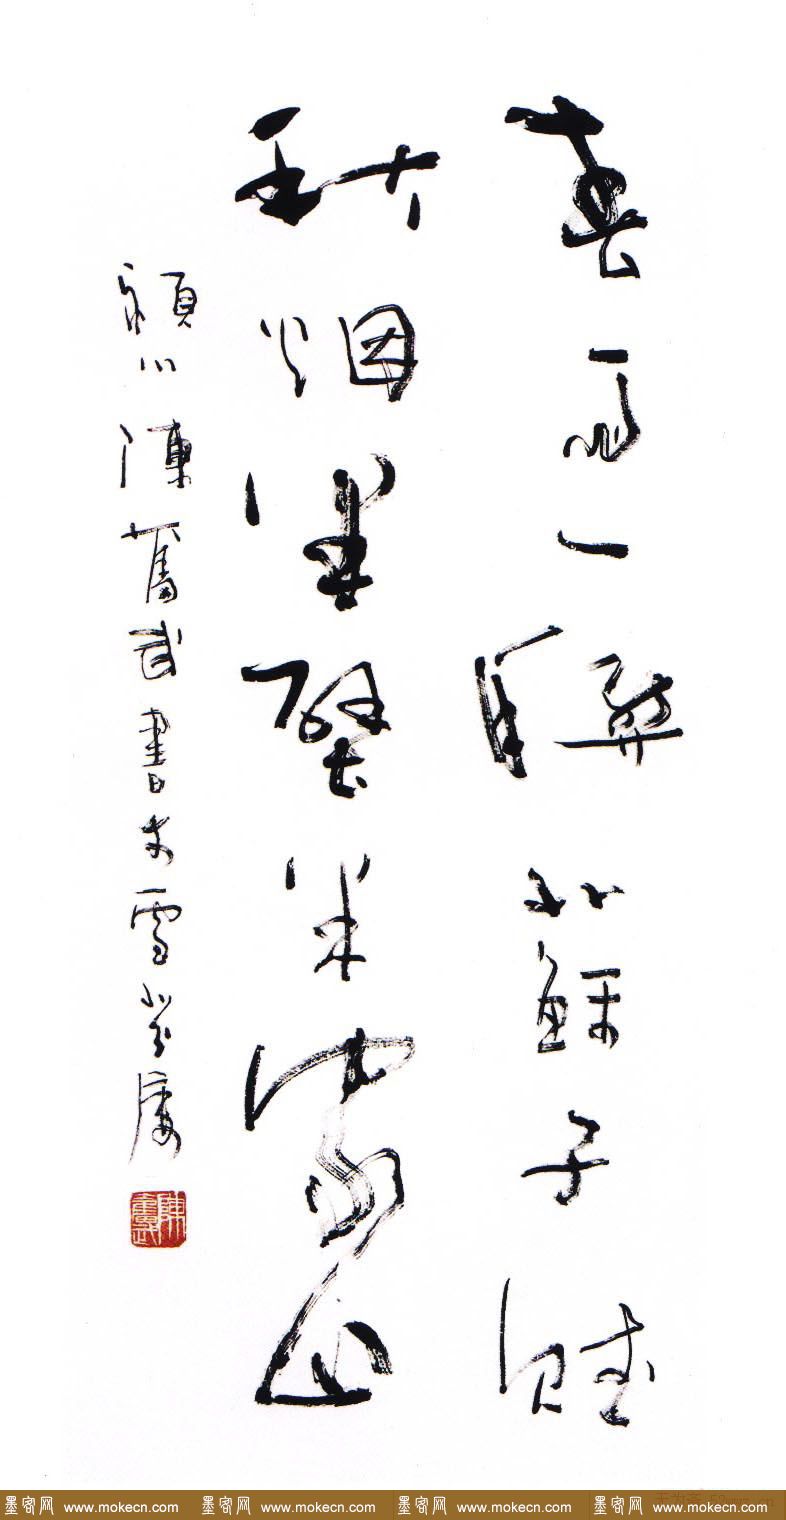 春雨一联苏子赋
秋烟半壁米家山
颍川陈旧武书于雪
陈旧武
墨客网 www.mokecn.com 墨客网 www.mokecn.com 墨客网 www.mokecn.com 墨客网 www.mokecn.com